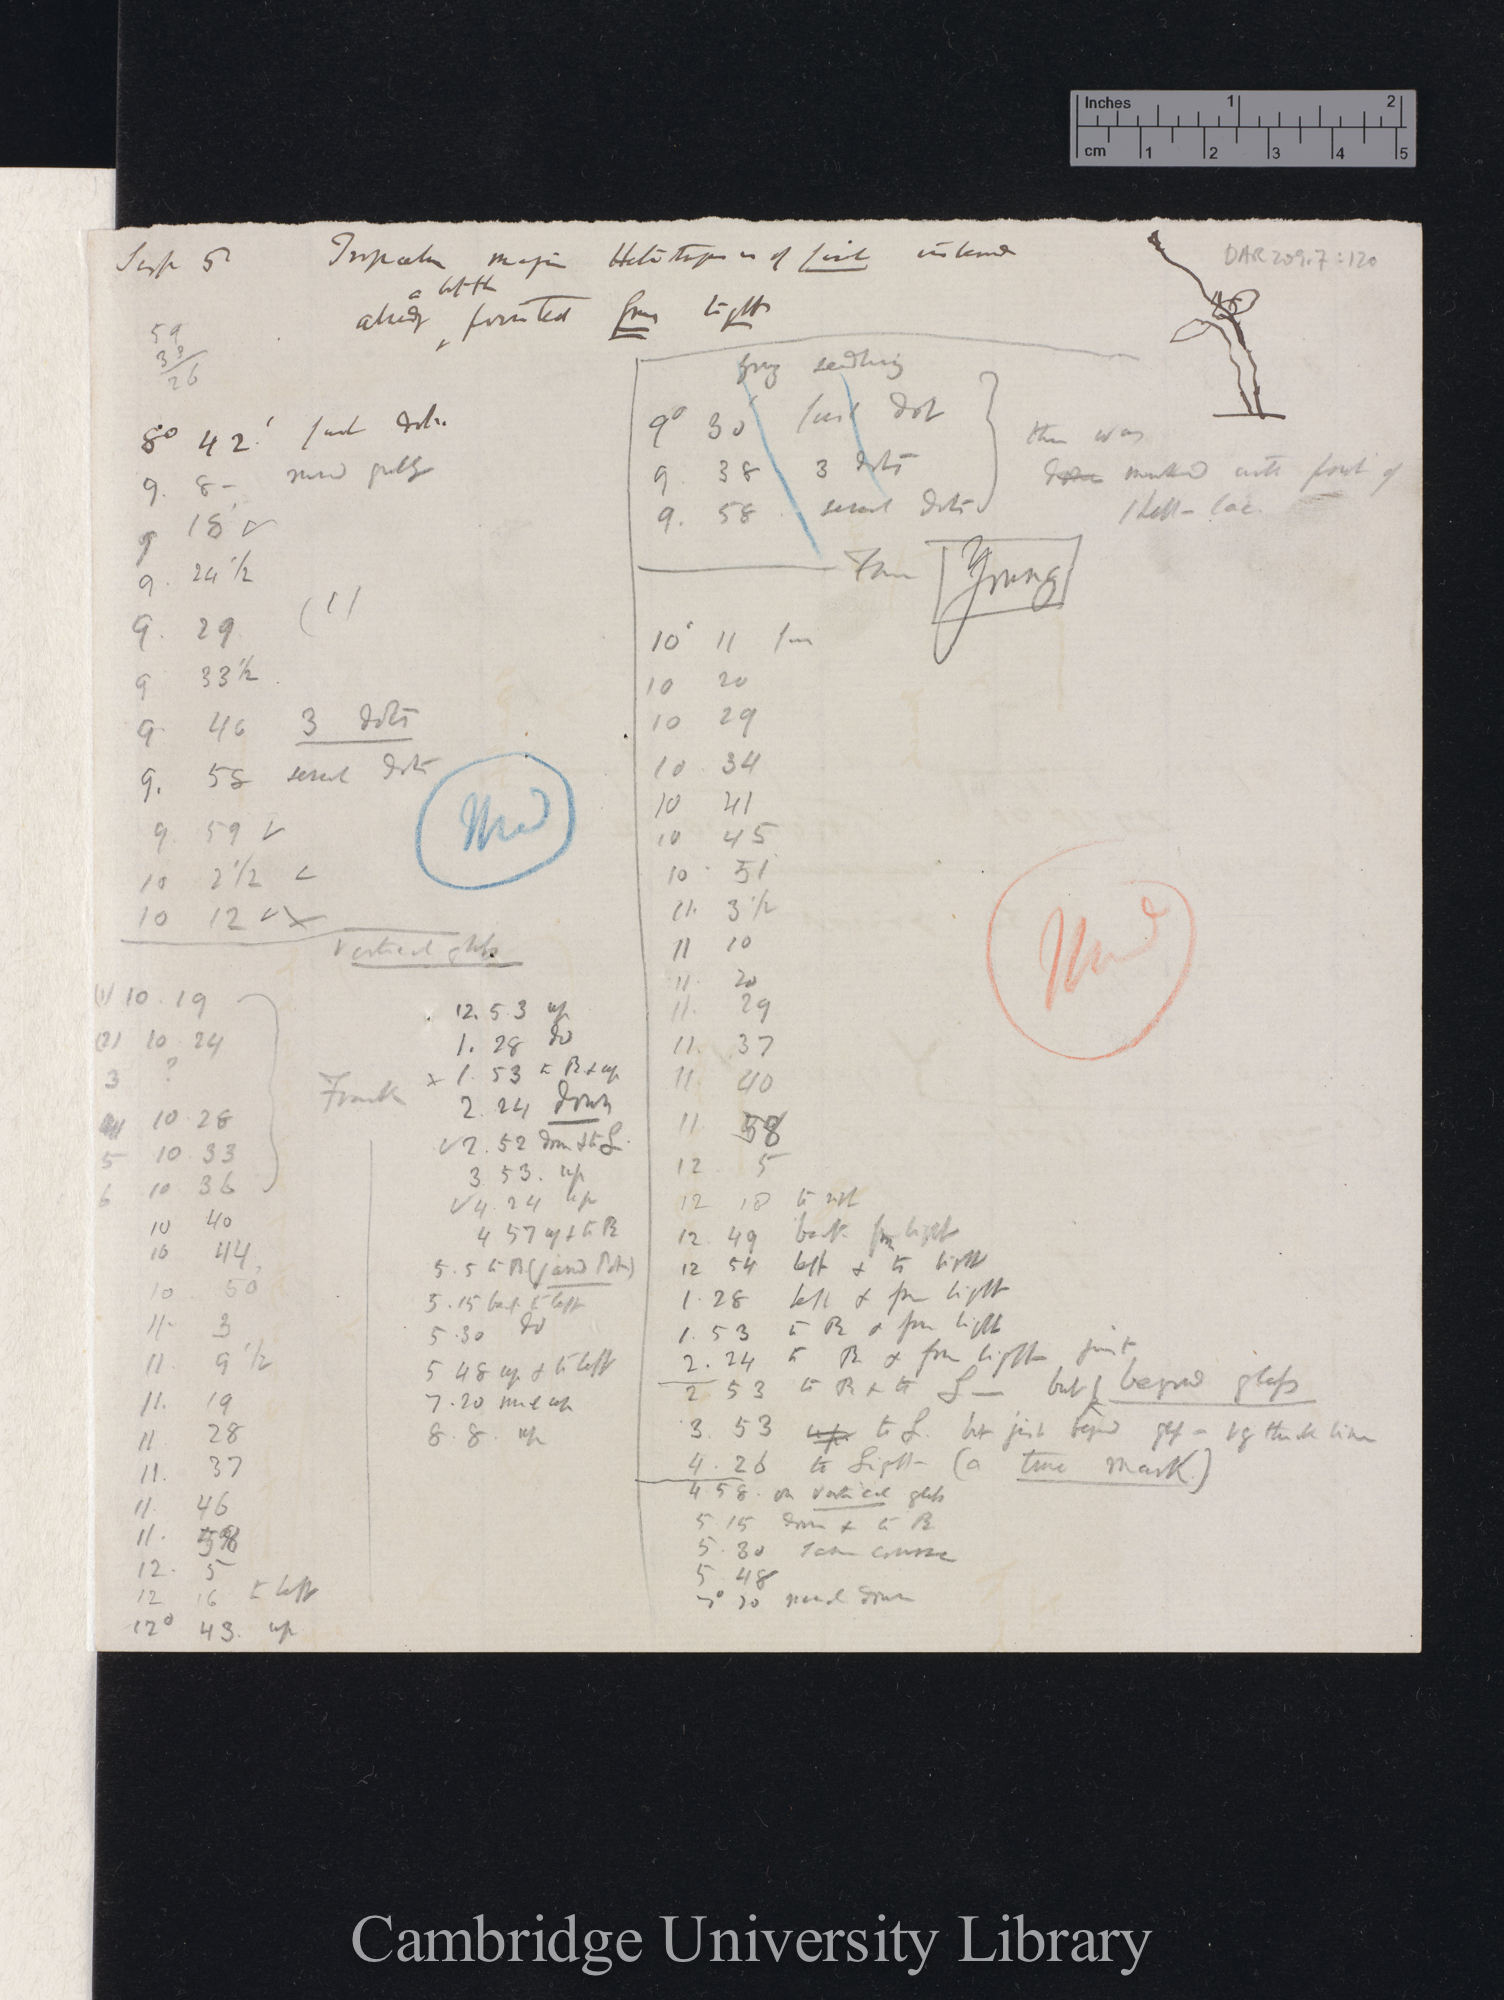 Inches 1 2
cm 1 2 3 4 5
DAR 209.7:120
Sept 5
Tropaeolum majus Heliotropism of first internode
a little
already pointed from light
59
38
26
8° 42' first dot.
9. 8–
9 18
9. 24 1/2
9. 29
9 33 1/2
9. 46 3 dots
9. 58 several dots
9. 59
10 2 1/2
10 12
Vertical glass
(1) 10. 19
(2) 10 24
3 ?
4 10 28
5 10. 33
6 10 36
10 40
10 44
10 50
11. 3
11. 9 1/2
11. 19
11 28
11. 37
11. 46
11. 58
12. 5
12 16 to left
12° 43. up
Frank
12. 53 up
1. 28 do
x 1. 53 to R & up
2. 24 down
2. 52 down & to L.
3. 53. up
4. 24 up
4 57 up & to R
5. 5 to R
5. 15 back to left
5. 30 do
5 48 up & to left
7. 20 up
8. 8. up
young seedling
9° 30' first dot
9. 38 3 dots
9. 58 several dots
then was
marked with point of
shell-lac.
Young
10° 11
10 20
10 29
10 34
10 41
10 45
10 51
11. 3 1/2
11 10
11. 20
11. 29
11. 37
11. 40
11. 58
12 5
12 18
12. 49 back from light
12 54 left & to light
1. 28 left & from light
1. 53 to R & from light
2. 24 to R & from light
2 53 to R & to L — but beyond glass
3. 53 to L. but just beyond glass
4. 26 to Light (a true mark)
4. 58. on vertical glass
5 15 down & to R
5. 30 same course
5 48
7° 20 down
Cambridge University Library